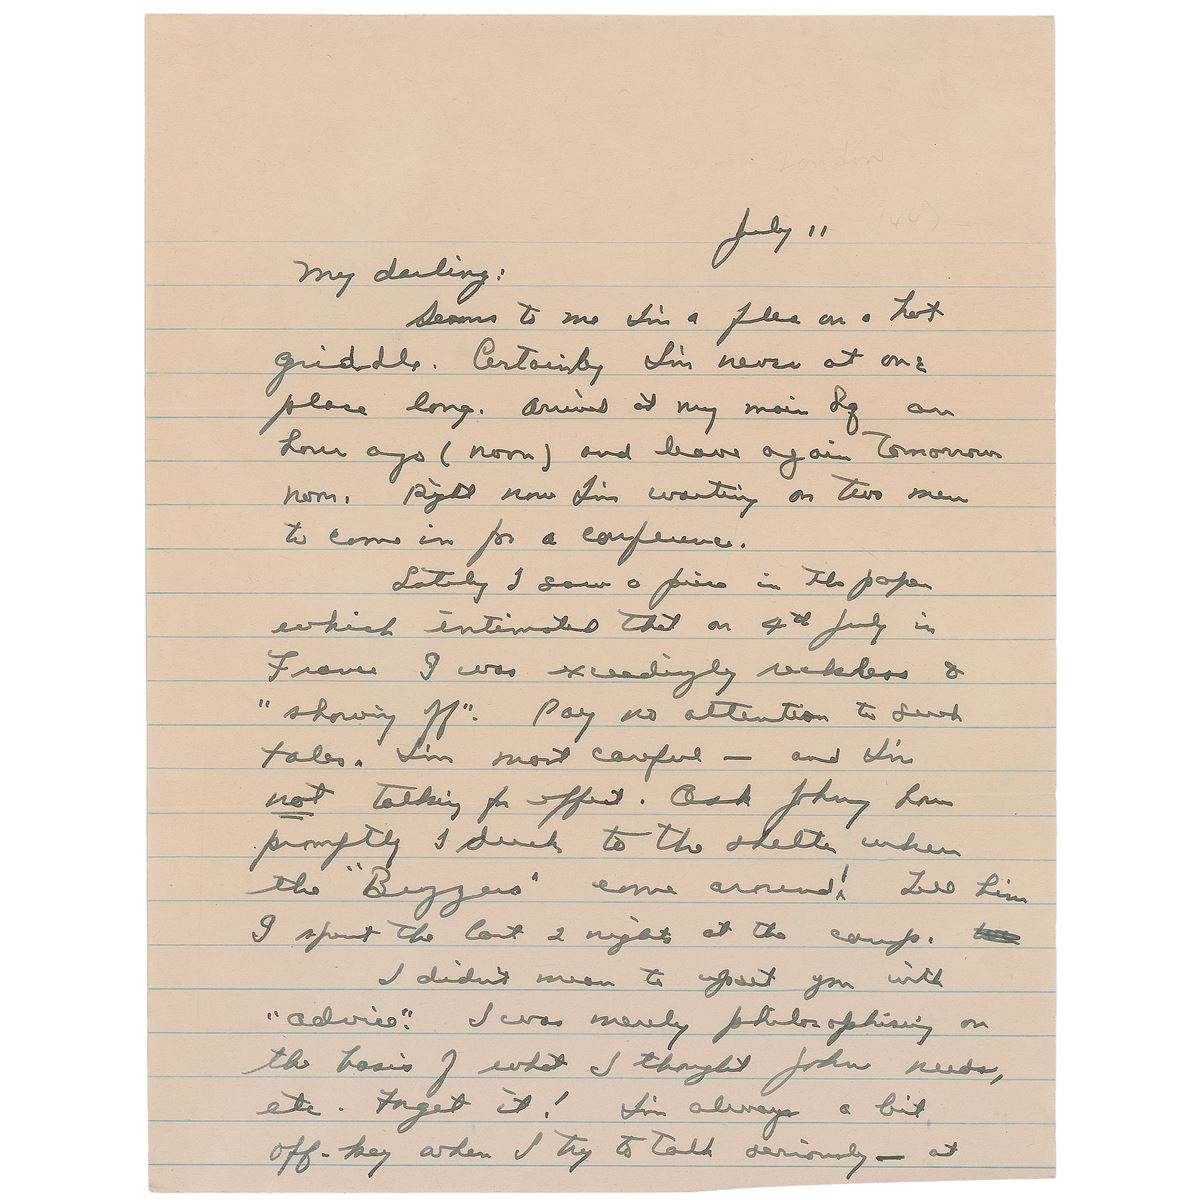 July 11
My darling:
Seems to me I'm a flea on a hot
griddle. Certainly I'm never at one
place long. Arrived at my main Hq an
hour ago (noon) and leave again tomorrow
noon. Right now I'm waiting on two men
to come in for a conference.
Lately I saw a piece in the paper
which intimated that on 4th July in
France I was exceedingly reckless &
"showing off". Pay no attention to such
tales. I'm most careful — and I'm
not talking for effect. Ask Johnny how
promptly I duck to the shelter when
the "Buzzers" come around! Tell him
I spent the last 2 nights at the camp.
I didn't mean to upset you with
"advice". I was merely philosophising on
the basis of what I thought John needs,
etc. Forget it! I'm always a bit
off-key when I try to talk seriously — at